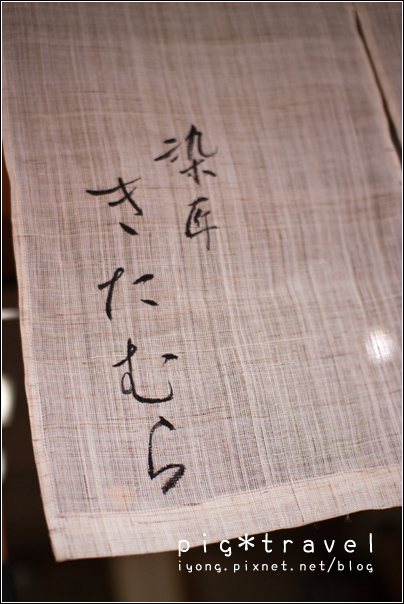 染匠
きたむら
pig*travel
iyong.pixnet.net/blog